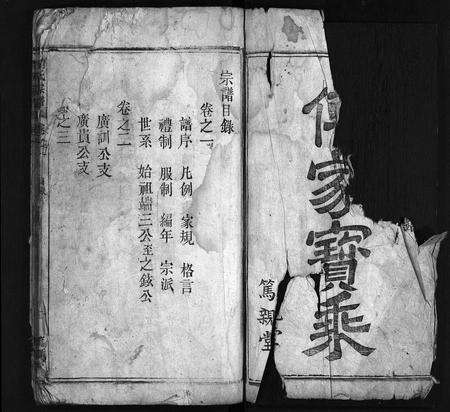 家寶乘
篤親堂
宗譜目錄
卷之一
譜序 凡例 家規 格言
禮制 服制 編年 宗派
世系 始祖瑞三公至之鉉公
卷之二
廣訓公支
廣貴公支
卷之三